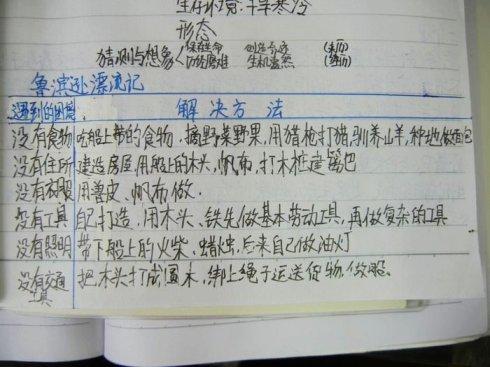 生存环境:干旱寒冷
形态
猜测与想象
鲁滨逊漂流记
遇到的困难 解决方法
没有食物 吃船上带的食物.摘野菜野果,用猎枪打猎,驯养山羊,种地做面包
没有住所 建造房屋,用船上的木头,帆布,打木桩建篱笆
没有衣服 用兽皮、帆布做.
没有工具 自己打造,用木头、铁先做基本劳动工具,再做复杂的工具
没有照明 带下船上的火柴、蜡烛,后来自己做油灯
没有交通工具 把木头打成圆木,绑上绳子运送货物,做船。